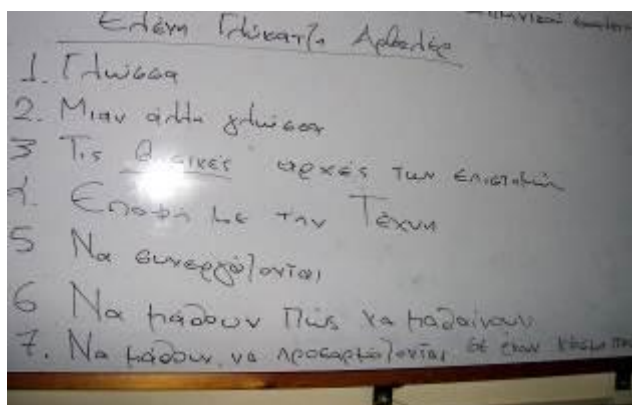 Ελένη Γλύκατζη Αρβελέρ
1. Γλώσσα
2. Μιαν άλλη γλώσσα
3 Τις βασικές αρχές των επιστημών
4. Επαφή με την Τέχνη
5 Να συνεργάζονται
6 Να μάθουν πώς να μαθαίνουν
7. Να μάθουν να προσαρμόζονται σε έναν κόσμο που